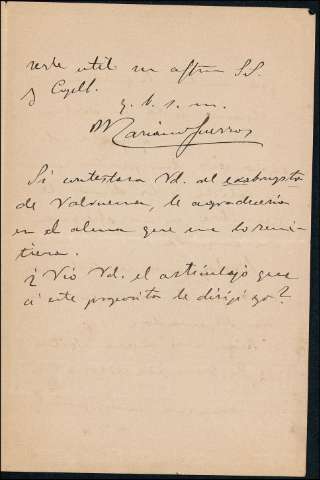 verle util su afftmo S.S.
y Capll.
q. b. s. m.
Mariano Guerras
Si contestara Vd. al exabrupto
de Valbuena, le agradecería
en el alma que me lo remi-
tiera.
¿Vió Vd. el articulejo que
á este proposito le dirijí yo?